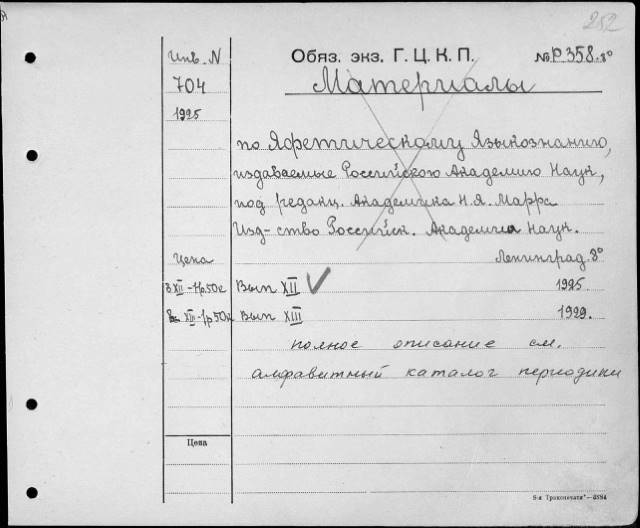 252
Инв. N
Обяз. экз. Г. Ц. К. П.
№ Р358.8°
704
Материалы
1925
по Яфетическому Языкознанию,
издаваемые Российского Академию Наук,
под редакц. Академика Н.Я. Марра
Изд-ство Российск. Академия Наук.
Цена
Ленинград. 8°
XII - 1р 50к Вып XII 1925.
XIII - 1р 50к Вып XIII 1929.
полное описание см.
алфавитный каталог периодики
Цена